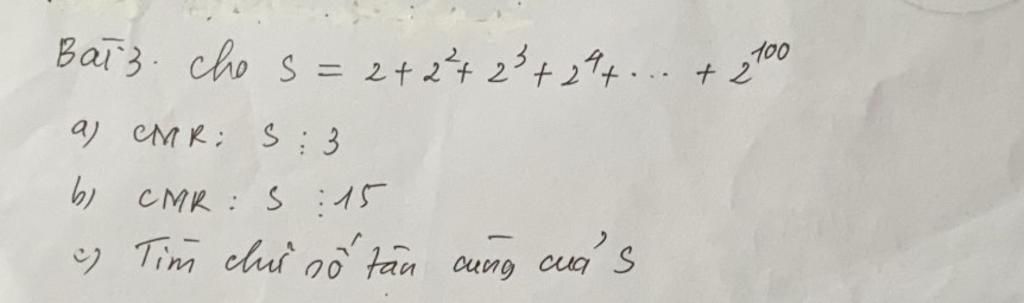 Bài 3. cho S = 2 + 2² + 2³ + 2⁴ + ... + 2¹⁰⁰
a) CMR: S ⋮ 3
b) CMR : S ⋮ 15
c) Tìm chữ số tận cùng của S